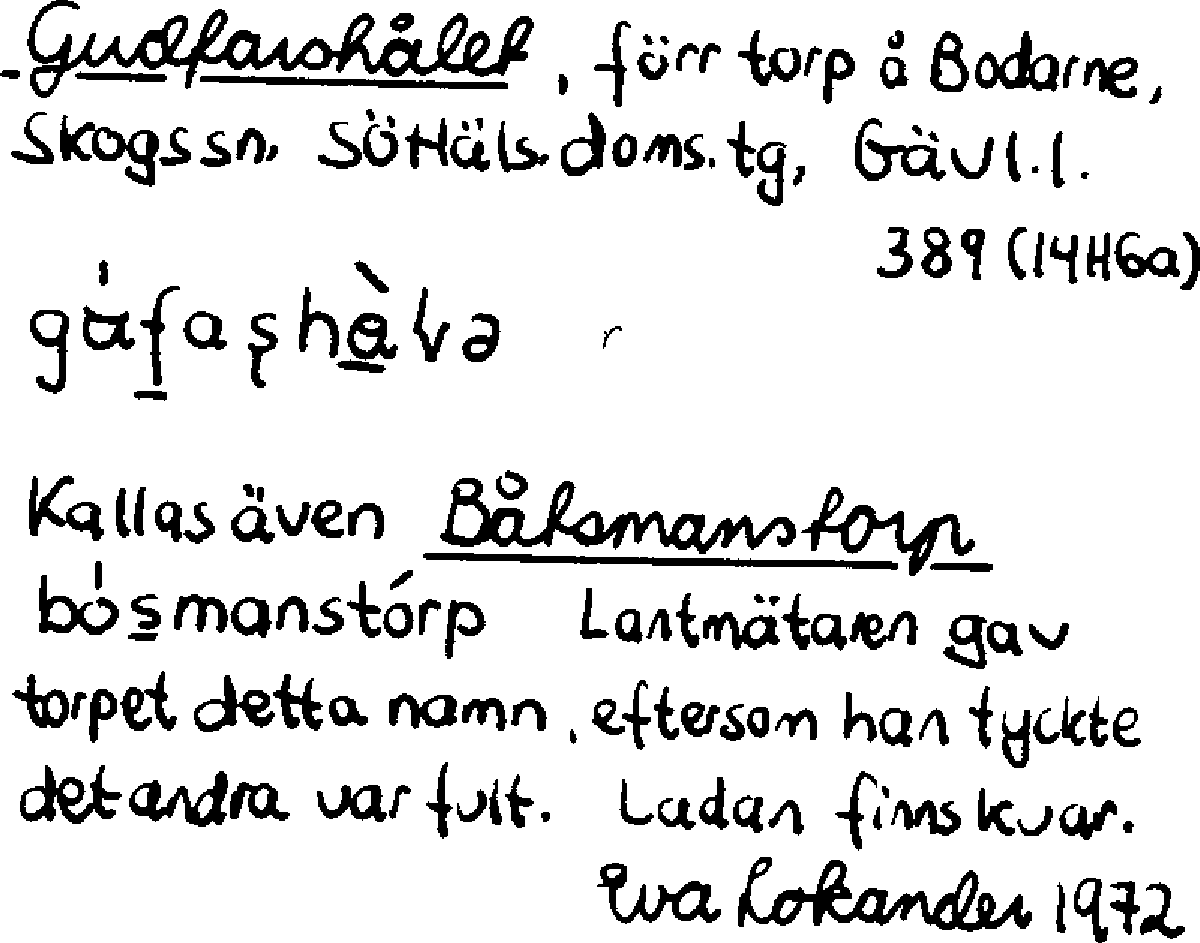 Gudfarshålet, förr torp å Bodarne,
Skogs sn, SöHäls. doms. tg, Gävl. l.
389 (14H6a)
gáfaşhàlə
Kallas även Båtsmanstorp
bósmanstórp Lantmätaren gav
torpet detta namn, eftersom han tyckte
det andra var fult. Ladan finns kvar.
Eva Lokander 1972